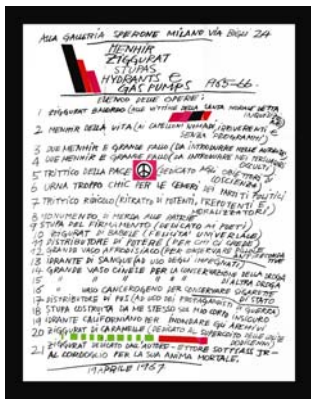 ALLA GALLERIA SPERONE MILANO VIA BIGLI 24
MENHIR
ZIGGURAT
STUPAS
HYDRANTS e
GAS PUMPS 1965-66.
ELENCO DELLE OPERE:
1 ZIGGURAT BALORDO (ALLE VITTIME DELLA SANTA MORALE DETTA
2 MENHIR DELLA VITA (AI CAPELLONI NOMADI, IRRIVERENTI E
SENZA PROGRAMMI)
3 DUE MENHIR E GRANDE FALLO (DA INTRODURRE NELLE
4 DUE MENHIR E GRANDE FALLO (DA INTRODURRE NEI
OCCULTI)
5 TRITTICO DELLA PACE (DEDICATO AGLI OBIETTORI DI
COSCIENZA)
6 URNA TROPPO CHIC PER LE CENERI DEI PARTITI POLITICI
7 TRITTICO RIDICOLO (RITRATTO DI POTENTI, PREPOTENTI E
MORALIZZATORI)
8 MONUMENDO DI MERDA ALLE PATRIE
9 STUPA DEL FIRMAMENTO (DEDICATO AI POETI)
10 ZIGURAT DI BABELE (FRUITORI UNIVERSALE)
11 DISTRIBUTORE DI POTERE (PER CHI CI CREDE)
12 GRANDE VASO AFRODISIACO (PER CONSERVARE PILLOLE
13 IDRANTE DI SANGUE (AD USO DEGLI IMPEGNATI)
14 GRANDE VASO CINESE PER LA CONSERVAZIONE DELLA DROGA
15 " " " " " DI ALTRA DROGA
16 " VASO CANCEROGENO PER CONSERVARE SIGARETTE
17 DISTRIBUTORE DI PUS (AD USO DEI PROPAGANDISTI DI STATO
18 STUPA COSTRUITA DA ME STESSO SUL MIO CORPO INSICURO
19 IDRANTE CALIFORNIANO PER INONDARE GLI ARCHIVI
20 ZIGGURAT DI CARAMELLE (DEDICATO AL SUPERCOITO DELLE
DODICENNI)
21 ZIGGURAT DEDICATO DALL'AUTORE - ETTORE SOTTSASS JR-
AL CORDOGLIO PER LA SUA ANIMA MORTALE.
19 APRILE 1967